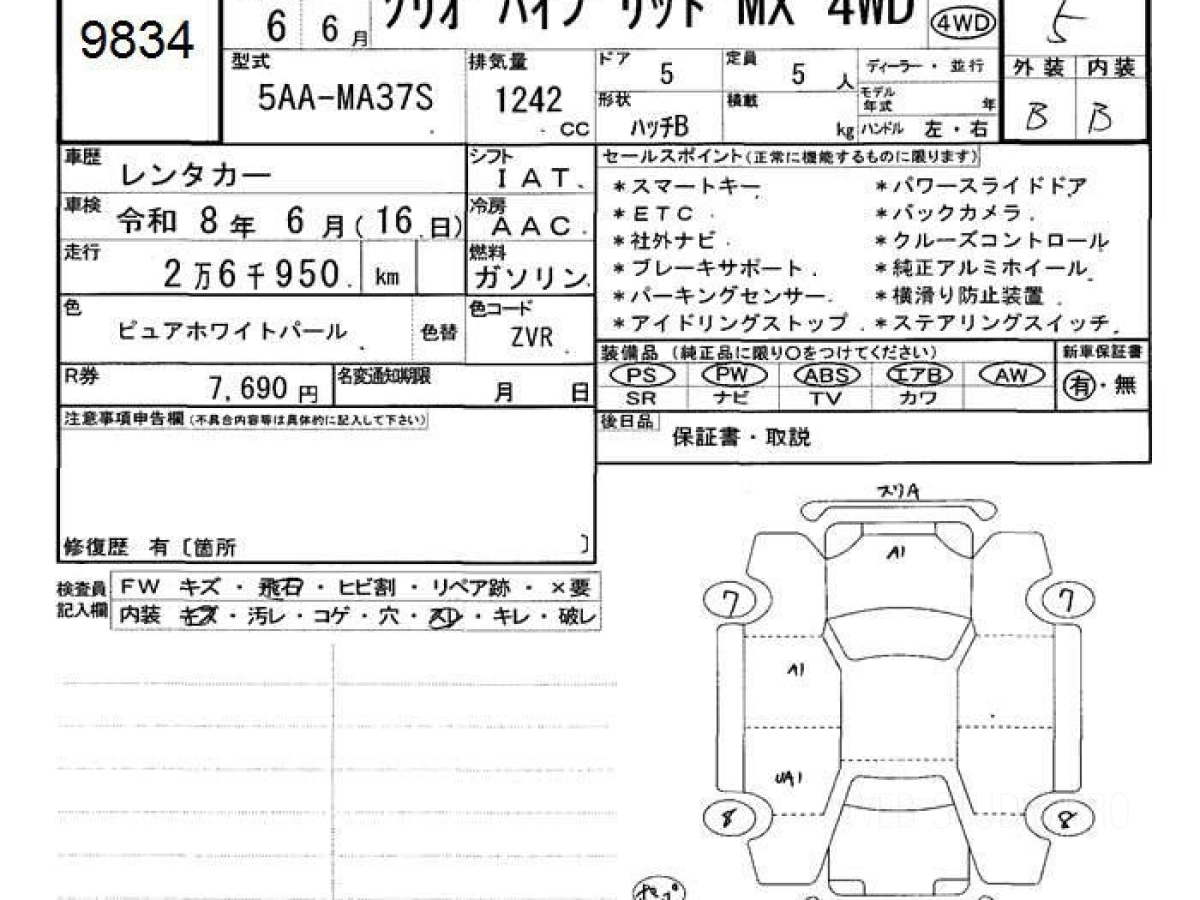 9834
6 6 月
ソリオ ハイブリッド MX 4WD
4WD
5
型式
5AA-MA37S
排気量
1242
CC
ドア
5
定員
5 人
ディーラー・並行
形状
ハッチB
積載
kg
モデル年式
年
ハンドル 左・右
外装 内装
B B
車歴
レンタカー
シフト
I A T.
車検
令和 8 年 6 月 ( 16 日)
冷房
A A C.
走行
2 万 6 千 950. km
燃料
ガソリン.
色
ピュアホワイトパール.
色替
色コード
ZVR.
R券
7,690 円
名変通知期限
月 日
セールスポイント(正常に機能するものに限ります)
*スマートキー *パワースライドドア
*ETC. *バックカメラ.
*社外ナビ. *クルーズコントロール
*ブレーキサポート. *純正アルミホイール
*パーキングセンサー. *横滑り防止装置.
*アイドリングストップ. *ステアリングスイッチ.
装備品 (純正品に限り○をつけてください)
新車保証書
PS PW ABS エアB AW
SR ナビ TV カワ
有・無
後日品
保証書・取説
注意事項申告欄(不具合内容等は具体的に記入して下さい)
修復歴 有〔箇所 〕
検査員記入欄
FW キズ・飛石・ヒビ割・リペア跡・×要
内装 キズ・汚レ・コゲ・穴・スレ・キレ・破レ
スリA
A1
7 7
A1
UA1
8 8